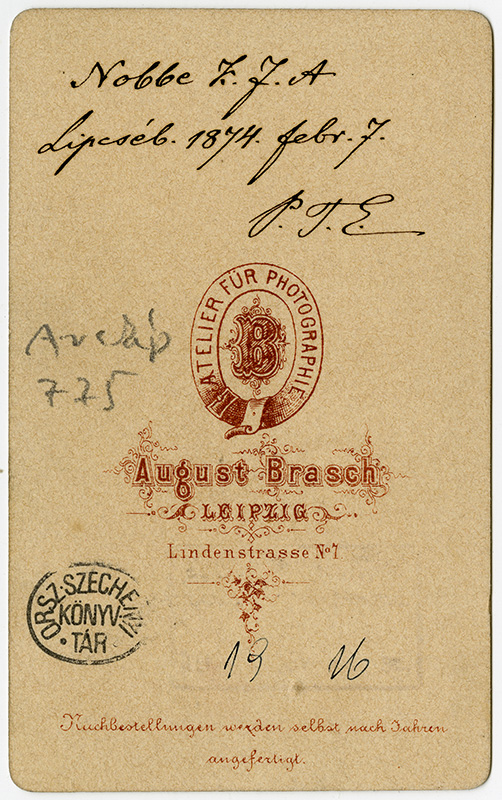 Nobbe Z. J. A
Lipcséb. 1874. febr. 7.
P. T. E.
ATELIER FÜR PHOTOGRAPHIE
B
Arckép
775
August Brasch
LEIPZIG
Lindenstrasse No 7
ORSZ. SZÉCHÉNYI
KÖNYV
TÁR
19 16
Nachbestellungen werden selbst nach Jahren
angefertigt.